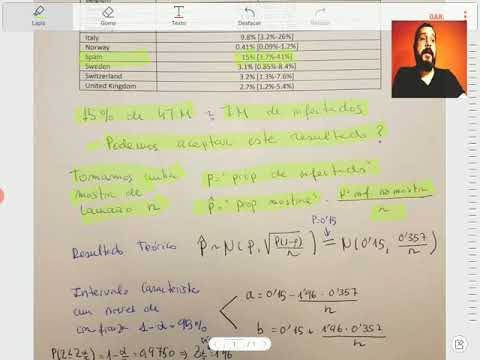 Lapis
Goma
Texto
Desfacer
Restablecer
Italy 9.8% [3.2%-26%]
Norway 0.41% [0.09%-1.2%]
Spain 15% [3.7%-41%]
Sweden 3.1% [0.85%-8.4%]
Switzerland 3.2% [1.3%-7.6%]
United Kingdom 2.7% [1.2%-5.4%]
15% de 47M ≈ 7M de infectados
Podemos aceptar este resultado?
Tomamos unha mostra de tamaño n
p = "prop de infectados"
p̂ = "prop mostra" = nº inf na mostra / n
Resultado Teórico p̂ ~ N(p, √(p(1-p)/n)) = N(0'15, 0'357/n)
p=0'15
Intervalo Característico
cun nivel de
confianza 1-α = 95%
a = 0'15 - 1'96 · 0'357 / n
b = 0'15 + 1'96 · 0'357 / n
P(Z≤Zα/2) = 1-α/2 = 0,9750 ⇒ Zα/2 = 1'96
1 / 1